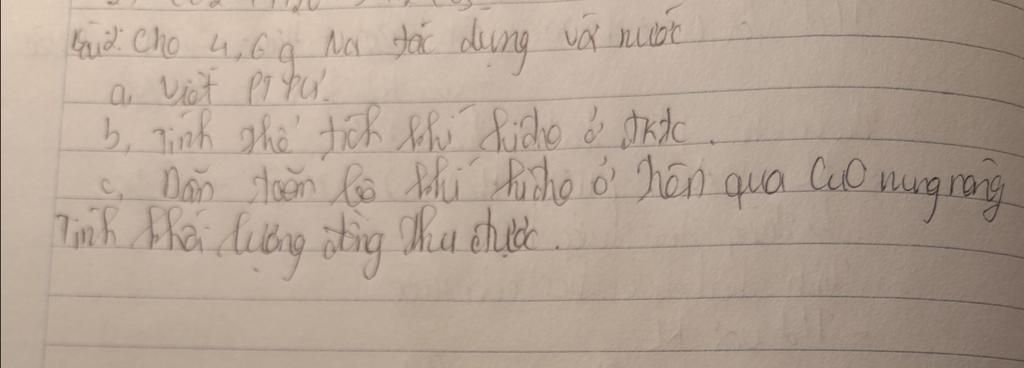 Bài 2: Cho 4,6g Na tác dụng với nước
a, Viết PTPƯ.
b, Tính thể tích khí hiđro ở đktc.
c, Dẫn toàn bộ khí hiđro ở trên qua CuO nung nóng
Tính khối lượng đồng thu được.